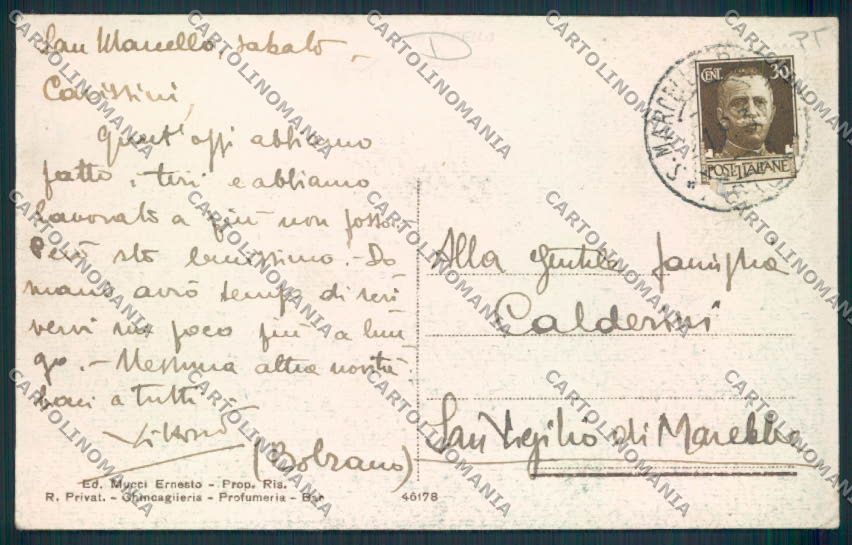 San Marcello, sabato
Carissimi,
Quest'oggi abbiamo
fatto i tiri e abbiamo
lavorato a più non posso.
Però sto benissimo. - Do
mani avrò tempo di scri
vervi un poco più a lun
go. - Nessuna altra novità.
baci a tutti
Vittorio
Ed. Mucci Ernesto - Prop. Ris.
R. Privat. - Chincaglieria - Profumeria - Bar
46178
S. MARCELLO
CENT. 30
POSTE ITALIANE
Alla gentile famiglia
Calderini
San Vigilio di Marebbe
(Bolzano)
CARTOLINOMANIA